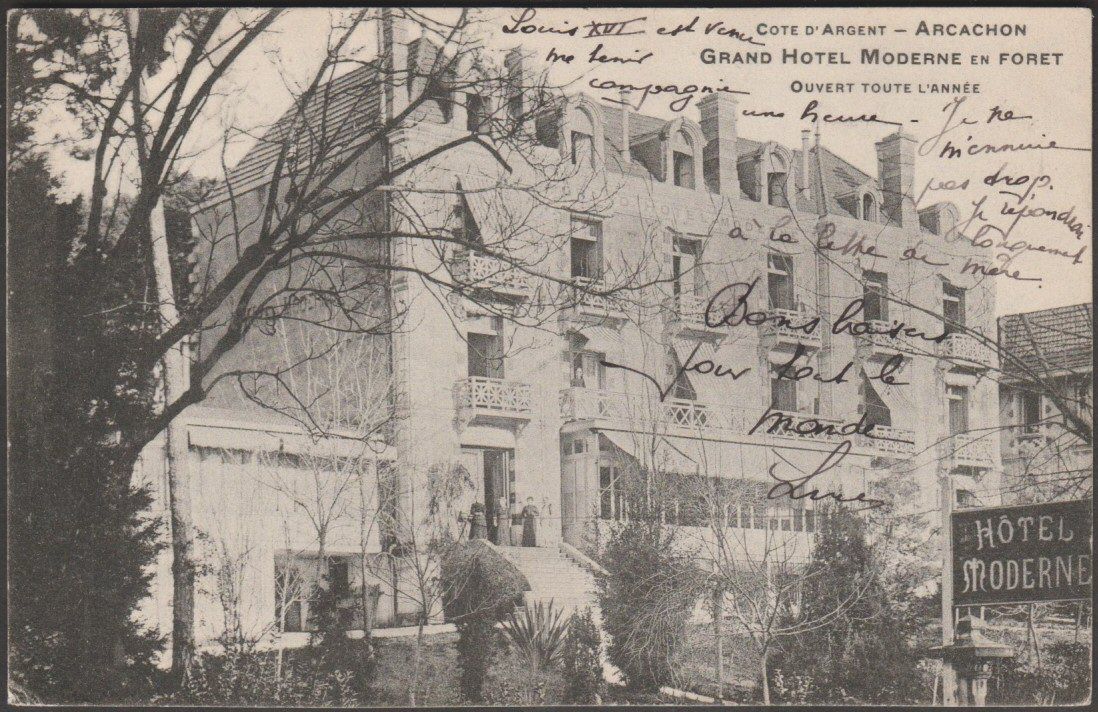 COTE D'ARGENT – ARCACHON
GRAND HOTEL MODERNE EN FORET
OUVERT TOUTE L'ANNÉE
Louis XVI est venu
me tenir
compagnie
une heure. Je ne
m'ennuie
pas trop.
Je répondrai
longuement
à la lettre de mère.
Bons baisers
pour tout le
monde
HÔTEL
MODERNE